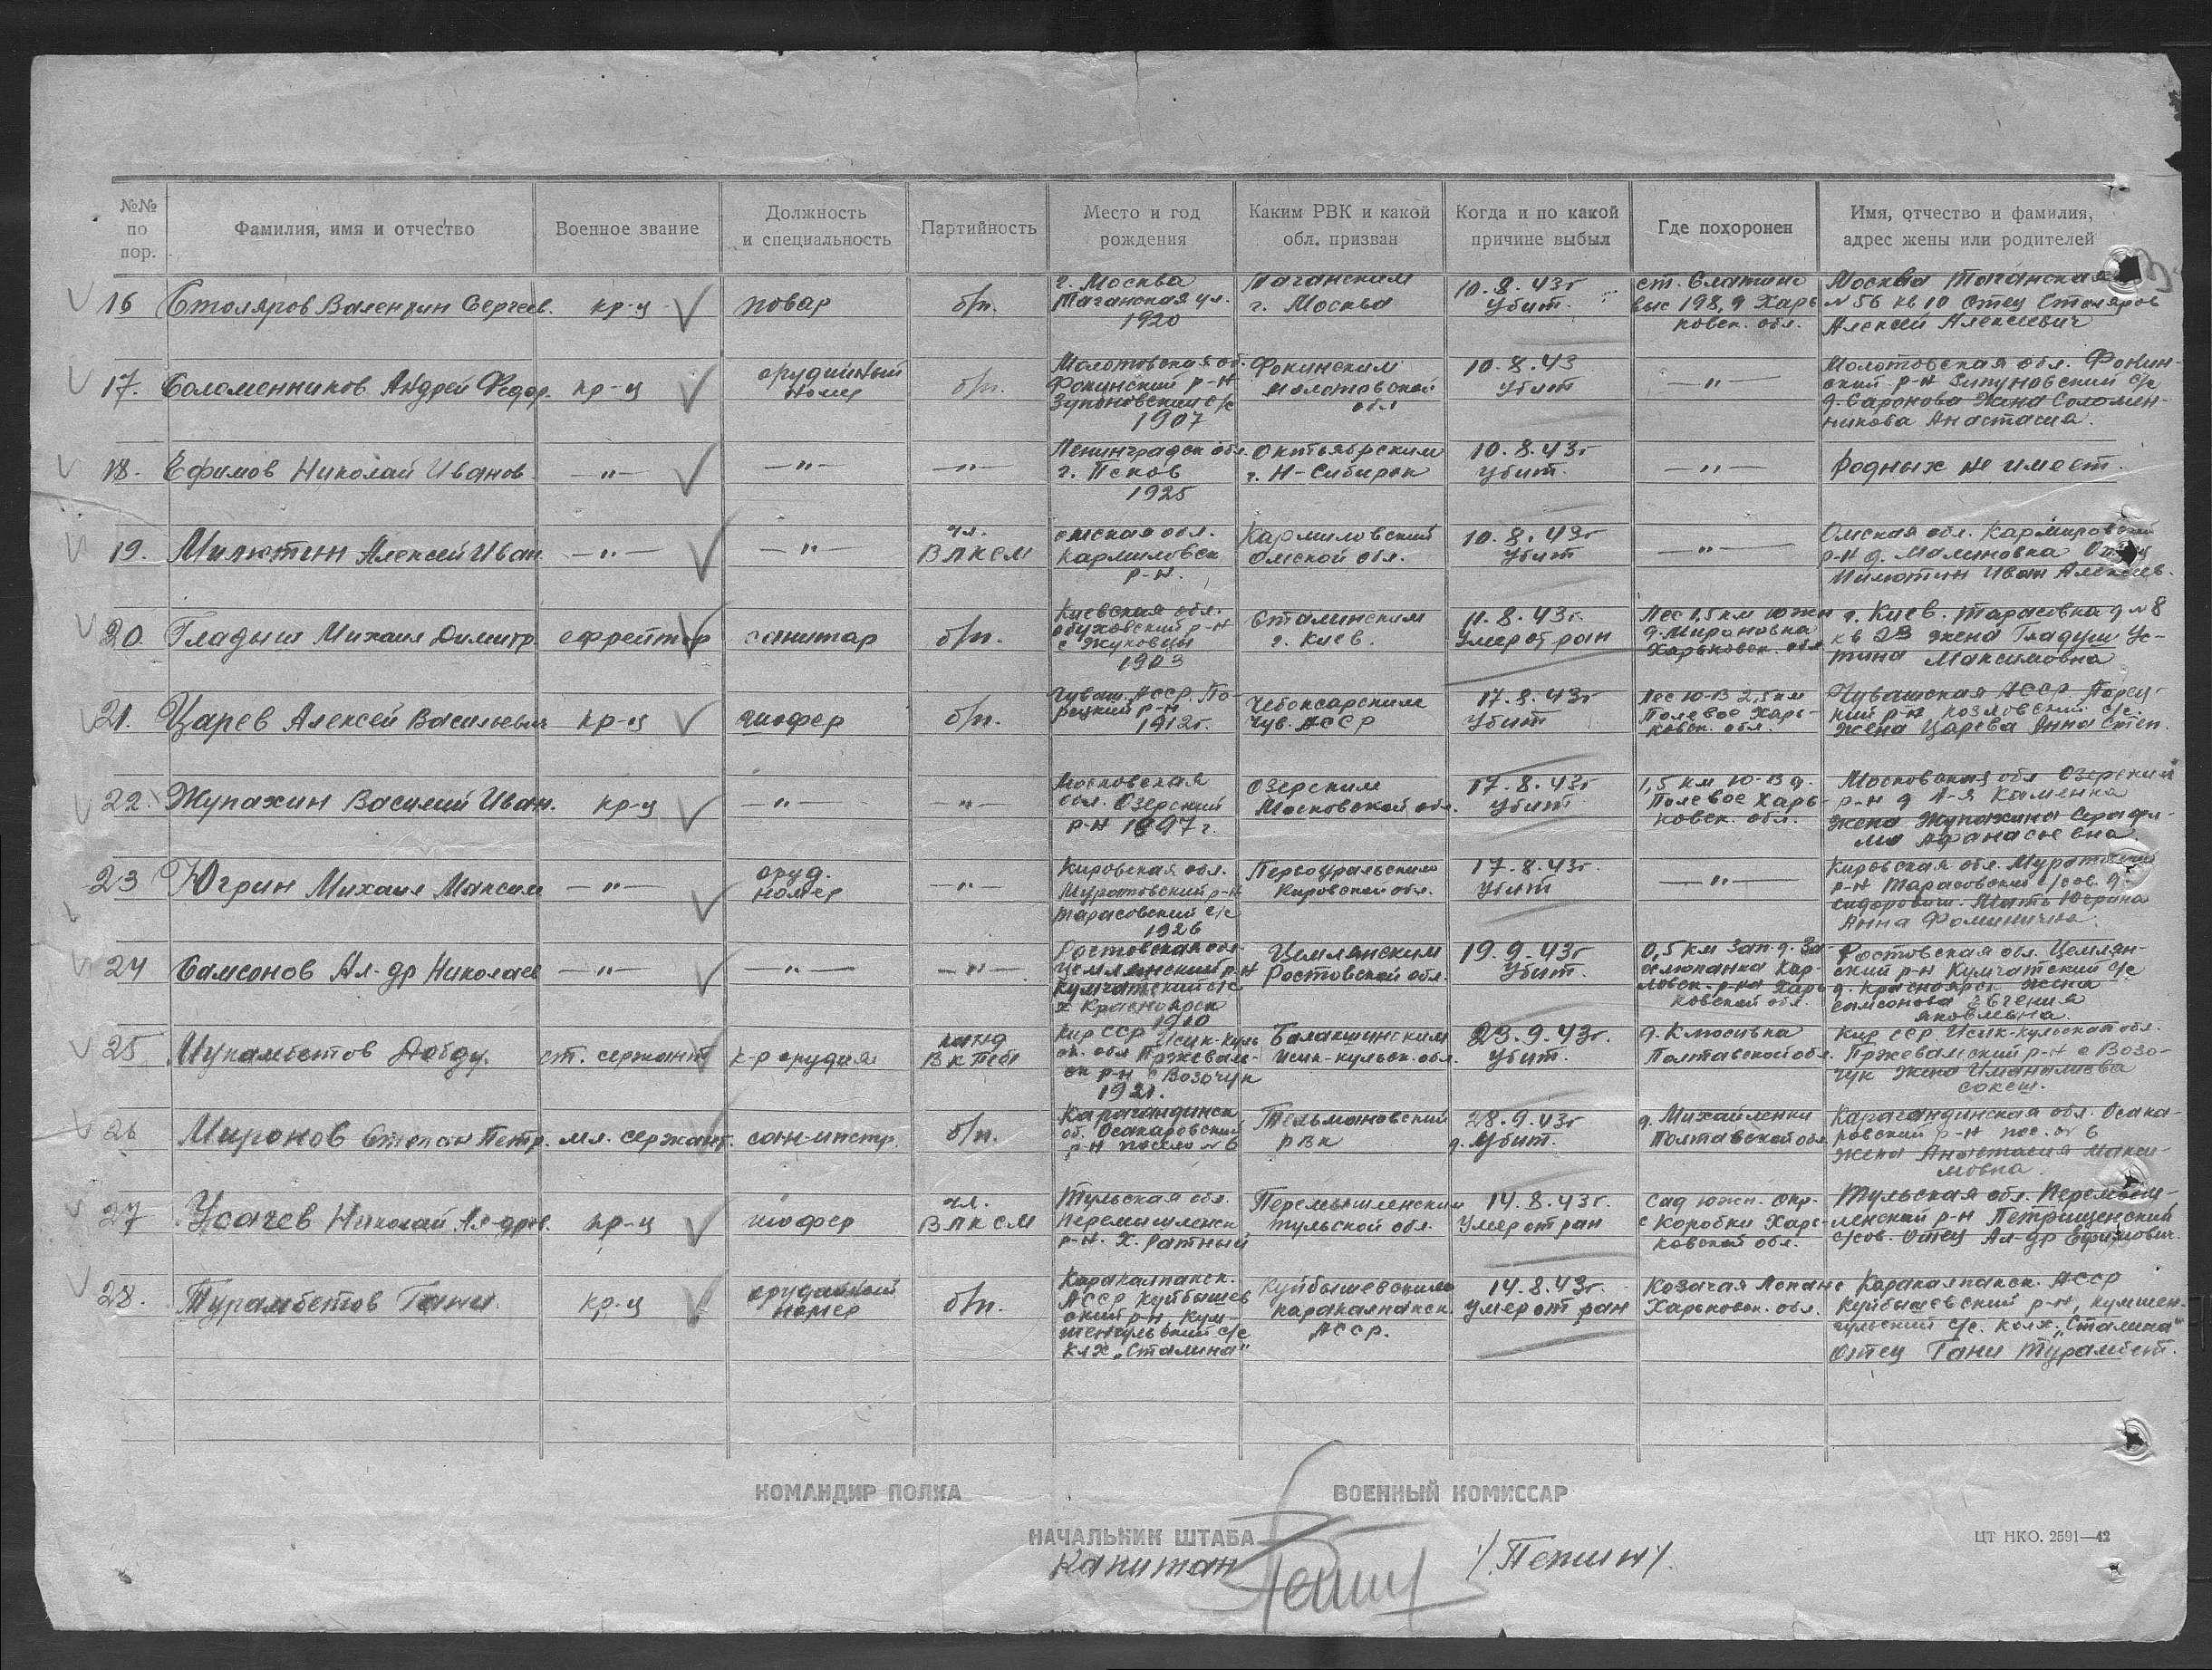 №№ по пор.
Фамилия, имя и отчество
Военное звание
Должность и специальность
Партийность
Место и год рождения
Каким РВК и какой обл. призван
Когда и по какой причине выбыл
Где похоронен
Имя, отчество и фамилия, адрес жены или родителей
16 Столяров Валентин Сергеев. кр-ц повар б/п.
г. Москва
Таганская ул.
1920
Таганским
г. Москва
10.8.43г
Убит.
ст. Слатино
выс 198,9 Харь
ковск. обл.
Москва Таганская
№56 кв 10 Отец Столяров
Алексей Алексеевич
17. Соломенников Андрей Федор. кр-ц
орудийный
номер
б/п.
Молотовская об.
Фокинский р-н
Зупоновский с/с
1907
Фокинским
Молотовской
обл
10.8.43
Убит
—"—
Молотовская обл. Фокин-
ский р-н Зипуновский с/с
д. Саронова Жена Соломен-
никова Анастасия.
18. Ефимов Николай Иванов —"— —"— —"—
Ленинградск обл.
г. Псков
1925
Октябрьским
г. Н-Сибирск
10.8.43г
Убит.
—"—
Родных не имеет.
19. Милютин Алексей Иван. —"— —"—
чл.
ВЛКСМ
омская обл.
Кармиловск
р-н.
Кармиловский
Омской обл.
10.8.43г
Убит
—"—
Омская обл. Кармировский
р-н д. Малиновка Отец
Милютин Иван Алексеев.
20. Гладыш Михаил Димитр. ефрейтор санитар б/п.
Киевская обл.
обуховский р-н
с Жуковцы
1903
Сталинским
г. Киев.
11.8.43г.
Умер от ран
Лес 1,5 км южн
д. Мироновка
Харьковск. обл
г. Киев. Тарасовка д №8
кв 23 жена Гладуш Ус-
тина Максимовна
21. Царев Алексей Васильевич кр-ц шофер б/п.
Чуваш. АССР. По-
рецкий р-н
1912г.
Чебоксарским
Чув. АССР
17.8.43г
Убит
Лес Ю-В 2,5 км
Полевое Харь-
ковск. обл.
Чувашская АССР Порец-
кий р-н Козловский с/с.
жена Царева Анна Степ.
22. Жупахин Василий Иван. кр-ц —"— —"—
Московская
обл. Озерский
р-н 1897г.
Озерским
Московской обл.
17.8.43г
Убит
1,5 км Ю-В д.
Полевое Харь-
ковск. обл.
Московская обл Озерский
р-н д 1-я Каменка
жена Жупахина Серафи-
ма Афанасьевна
23 Югрин Михаил Максим —"—
оруд.
номер
—"—
Кировская обл.
Муратовский р-н
Тарасовский с/с
1926
Первоуральским
Кировской обл.
17.8.43г.
Убит
—"—
Кировская обл. Муратовский
р-н Тарасовский с/сов. д.
Сидорович. Мать Югрина
Анна Фоминична.
24 Самсонов Ал-др Николаев —"— —"— —"—
Ростовская обл.
Цемлянский р-н
Кумчатский с/с
х Красноярск
1910
Цемлянским
Ростовской обл.
19.9.43г
Убит.
0,5 км Зап. д. За-
хлюпанка Кар-
ловск. р-на Харь
ковской обл.
Ростовская обл. Цемлян-
ский р-н Кумчатский с/с
д. Красноярск жена
Самсонова Евгения
Яковлевна.
25 Мукамбетов Добду. ст. сержант к-р орудия
канд
ВКП(б)
Кир ССР Исик-куль
ск. обл Пржеваль-
ск р-н с Возочук
1921.
Балакшинским
Исик-кульск. обл.
23.9.43г.
Убит.
д. Клюсивка
Полтавской обл.
Кир ССР Исик-кульская обл.
Пржевальский р-н с Возо-
чук жена Иманалиева
сокеш.
26 Миронов Степан Петр. мл. сержант. сан-инстр. б/п.
Карагандинск
об. Осакаровский
р-н поселок №6
Тельмановский
рвк
28.9.43г
Убит.
д. Михайленки
Полтавской обл.
Карагандинская обл. Осака-
ровский р-н пос. №6
жена Анастасия Макси-
мовна.
27 Усачев Николай Ал-дров. кр-ц шофер
чл.
ВЛКСМ
Тульская обл.
Перемышленск
р-н. х. Ратный
Перемышленским
Тульской обл.
14.8.43г.
Умер от ран
Сад южн. окр.
с Коробки Харь-
ковской обл.
Тульская обл. Перемыш-
ленский р-н Петрищенский
с/сов. Отец Ал-др Ефимович.
28. Турамбетов Гани. кр-ц
орудийный
номер
б/п.
Каракалпакск.
АССР Куйбышев
ский р-н, Кум-
шенгульский с/с
клх „Сталина"
Куйбышевским
Каракалпакск.
АССР.
14.8.43г.
Умер от ран
Козачая Лопань
Харьковск. обл.
Каракалпакск. АССР
Куйбышевский р-н, Кумшен-
гульский с/с. колх „Сталина"
Отец Гани Турамбет.
КОМАНДИР ПОЛКА
ВОЕННЫЙ КОМИССАР
НАЧАЛЬНИК ШТАБА
Капитан
/.Пепин/.
ЦТ НКО. 2591—42